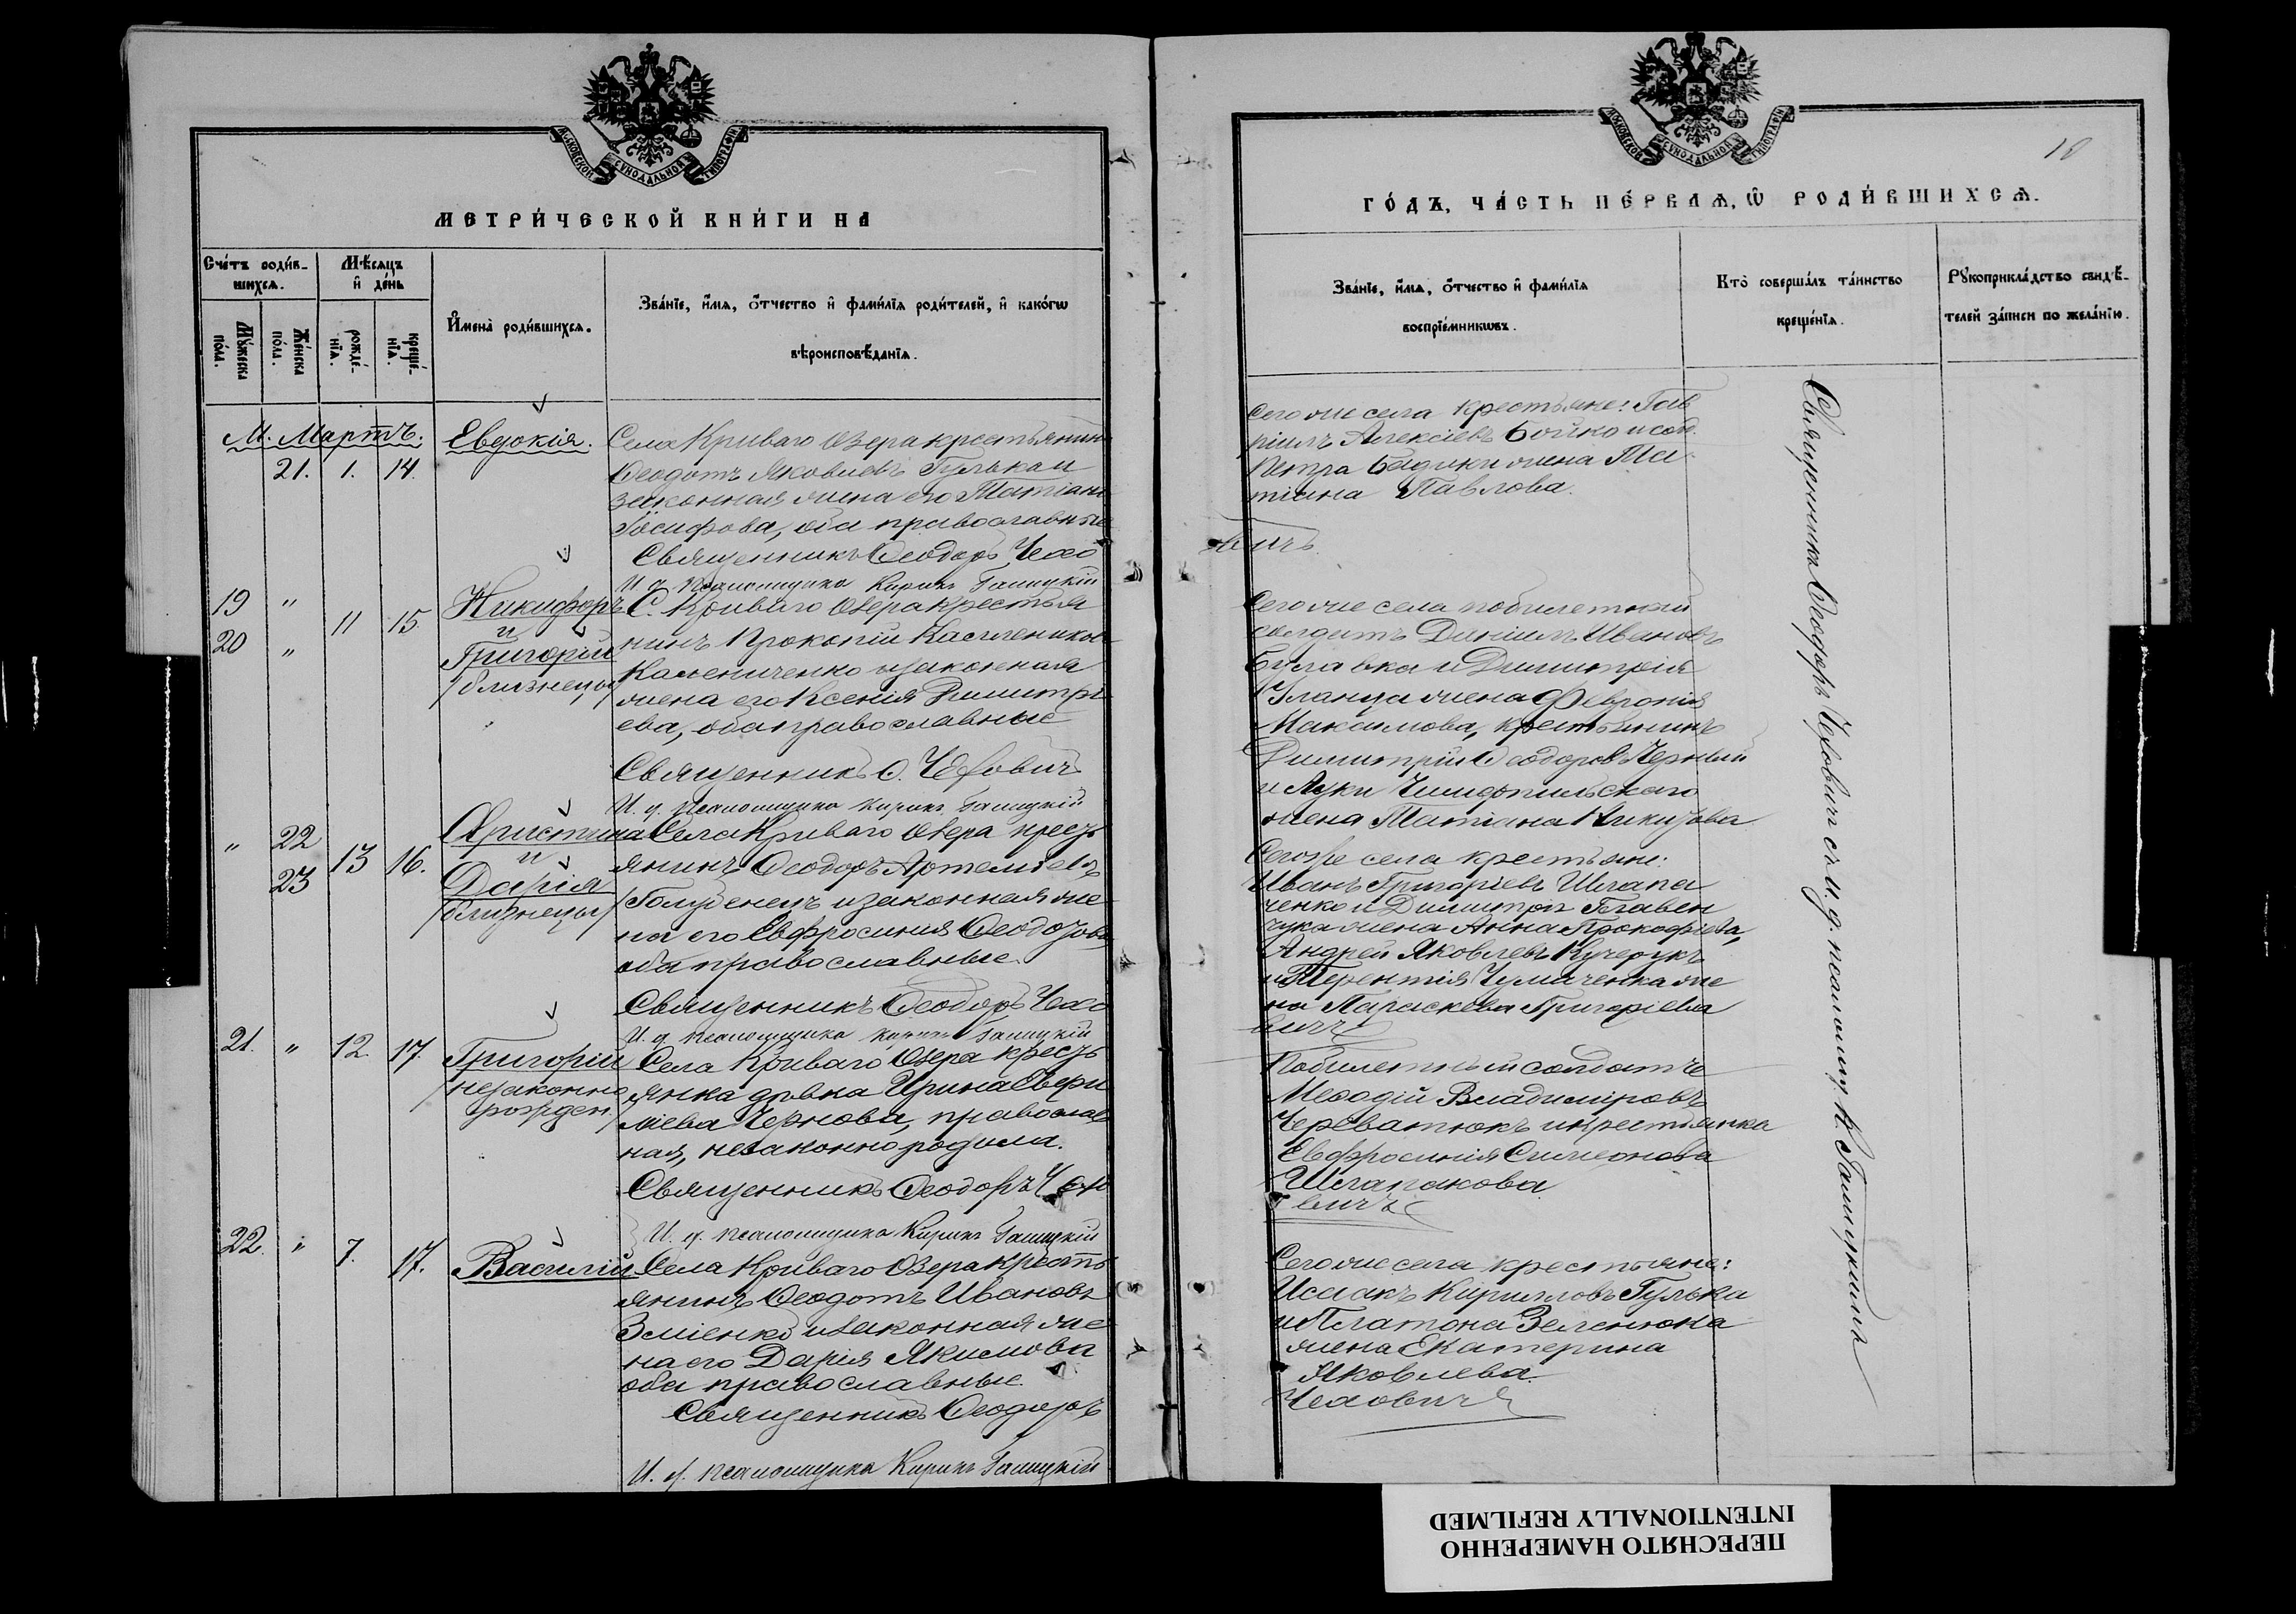 МОСКОВСКОЙ СѴНОДАЛЬНОЙ ТИПОГРАФІИ
МЕТРИ́ЧЕСКОЙ КНИ́ГИ НА
Сче́тъ роди́в-
шихсѧ.
Мѣ́сѧцъ
и҆ де́нь
И҆мена̀ роди́вшихсѧ.
Зва́нїе, и҆́мѧ, ѻ҆́тчество и҆ фами́лїѧ роди́телей, и҆ како́гѡ
вѣроисповѣ́данїѧ.
Мꙋ́жеска
по́ла.
Же́нска
по́ла.
рожде́-
нїѧ.
креще́-
нїѧ.
М. Мартъ.
21. 1. 14.
Евдокія.
Села Криваго Озера крестьянинъ
Ѳеодотъ Яковлевъ Гулька и
законная жена его Татіана
Іосифова, оба православные
Священникъ Ѳеодоръ Чехо
И. д. псаломщика Кирилъ Галицкій
19 " 11 15.
20 "
Никифоръ
и
Григорій
/близнецы/
С. Криваго Озера крестья
нинъ Прокопій Касьяников
Калениченко и законная
жена его Ксенія Димитрі
ева, оба православные
Священникъ Ѳ. Чехович
И. д. псаломщика Кирилъ Галицкій
" 22 13 16.
23
Христина
и
Дарія
/близнецы/
Села Криваго Озера кресть
янинъ Ѳеодоръ Артеміевъ
Голубенецъ и законная же
на его Евфросинія Ѳеодорова
оба православные.
Священникъ Ѳеодоръ Чехо
И. д. псаломщика Кирилъ Галицкій
21. " 12. 17.
Григорій
/незаконно
рожден./
Села Криваго Озера кресть
янка дѣвка Ирина Евфи
міева Чернова, православ
ная, незаконно родила.
Священникъ Ѳеодоръ Чехо
И. д. псаломщика Кирилъ Галицкій
22. " 7. 17.
Василій
Села Криваго Озера кресть
янинъ Ѳеодотъ Ивановъ
Зміенко и законная же
на его Дарія Якимова
оба православные.
Священникъ Ѳеодоръ
И. д. псаломщика Кирилъ Галицкій
МОСКОВСКОЙ СѴНОДАЛЬНОЙ ТИПОГРАФІИ
18
ГО́ДЪ, ЧА́СТЬ ПЕ́РВАѦ, Ѡ҆ РОДИ́ВШИХСѦ.
Зва́нїе, и҆́мѧ, ѻ҆́тчество и҆ фами́лїѧ
воспрїе́мникѡвъ.
Кто̀ соверша́лъ та́инство
креще́нїѧ.
Рꙋкоприкла́дство свидѣ́-
телей за́писи по жела́нїю.
Сего же села крестьяне: Гав
ріилъ Алексіевъ Бойко и солд.
Петра Бадики жена Та
тіана Павлова.
вичъ.
Сего же села побилетный
солдатъ Даніилъ Ивановъ
Булавка и Димитрія
Уланца жена Февронія
Максимова, крестьянинъ
Димитрій Ѳеодоров Черный
и Луки
жена Татіана Никифова
Сего же села крестьяне:
Иванъ Григоріевъ Шлапа
ченко и Димитрія Главен
чука жена Анна Прокофиева,
Андрей Яковлевъ Кучерукъ
и Терентія Чумаченка же
на Параскева Григоріева
вичъ
Побилетный солдатъ
Меѳодій Владиміровъ
Череватюкъ и крестьянка
Евфросинія Симеонова
Шлапакова
вичъ
Сего же села крестьяне:
Исаакъ Кирилловъ Гулька
и Платона Зеленюка
жена Екатерина
Яковлева.
Чеховичъ
Священникъ Ѳеодоръ Чеховичъ съ и. д. псаломщ. К. Галицкимъ
ПЕРЕСНЯТО НАМЕРЕННО
INTENTIONALLY REFILMED